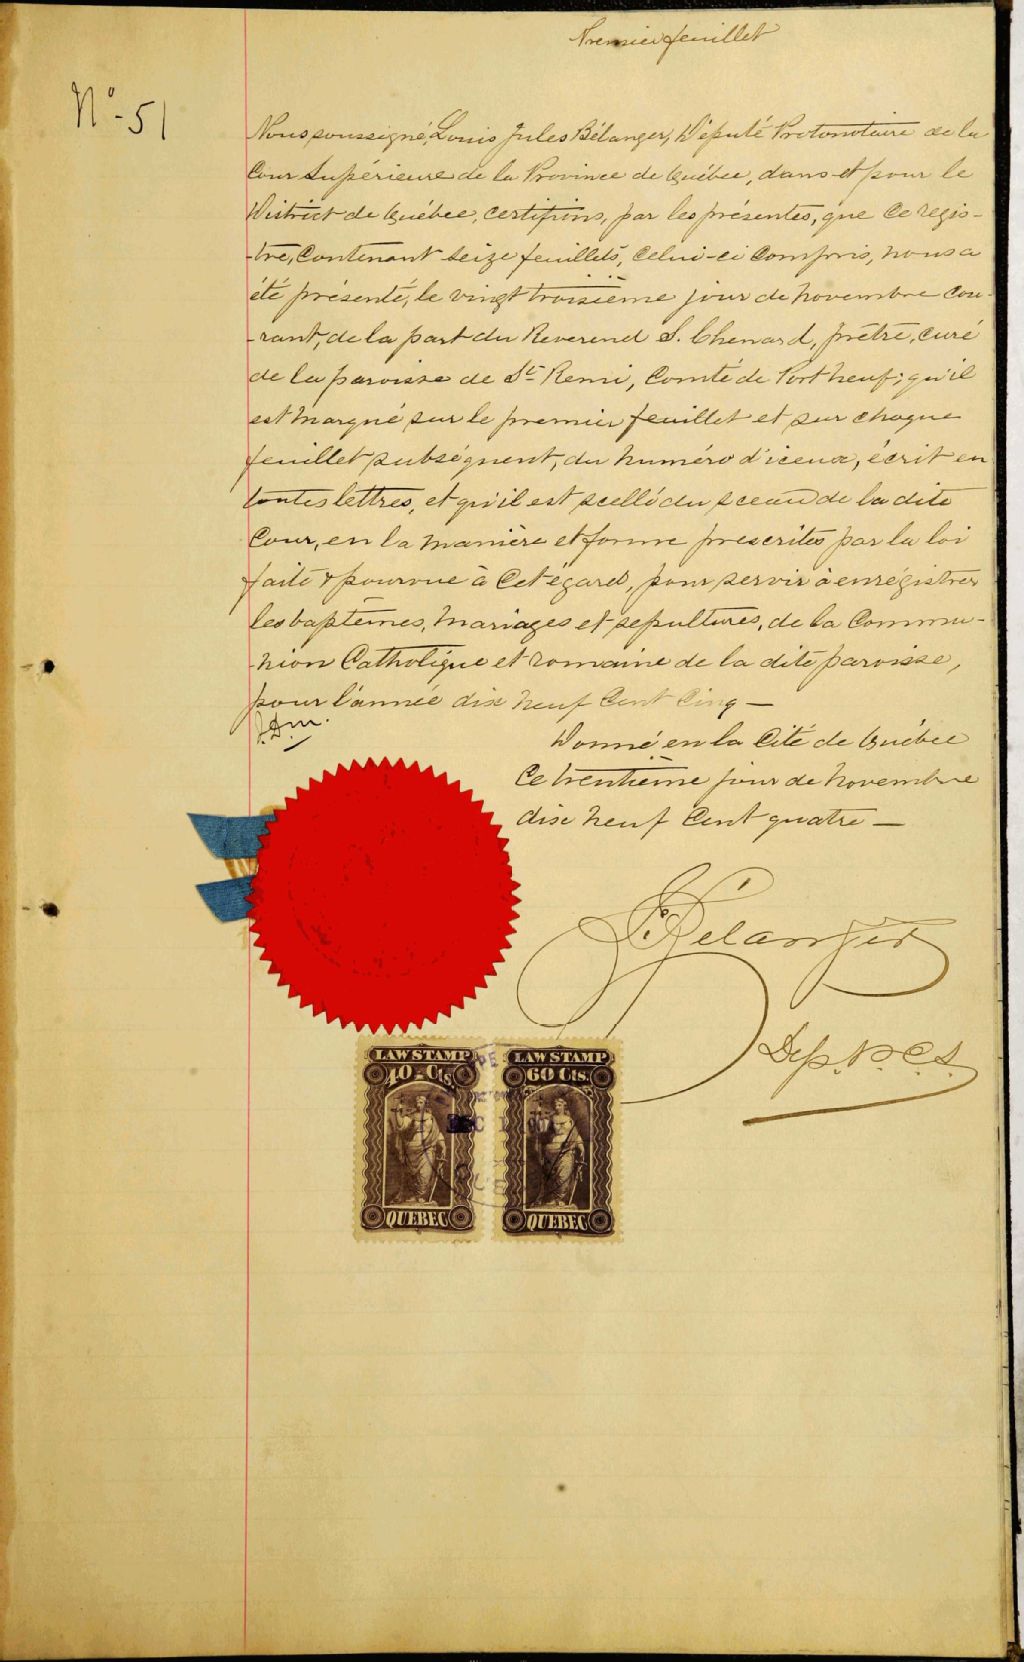 Premier feuillet
No - 51
Nous soussigné, Louis Jules Bélanger, Député Protonotaire de la
Cour Supérieure de la Province de Québec, dans et pour le
District de Québec, certifions, par les présentes, que ce regis-
-tre, contenant seize feuillets, celui-ci compris, nous a
été présenté, le vingt troisième jour de novembre cou-
-rant, de la part du Reverend S. Chenard, prêtre, curé
de la paroisse de St Remi, Comté de Portneuf; qu'il
est marqué sur le premier feuillet et sur chaque
feuillet subséquent, du numéro d'iceux, écrit en
toutes lettres, et qu'il est scellé du sceau de la dite
Cour, en la manière et forme prescrites par la loi
faite & pourvue à cet égard, pour servir à enrégistrer
les baptêmes, mariages et sépultures, de la Commu-
-nion Catholique et romaine de la dite paroisse,
pour l'année dix neuf Cent Cinq —
Donné en la Cité de Québec
Ce trentième jour de novembre
dix neuf Cent quatre —
Belanger
Dep. P. C. S.
LAW STAMP LAW STAMP
40 Cts. 60 Cts.
QUEBEC QUEBEC